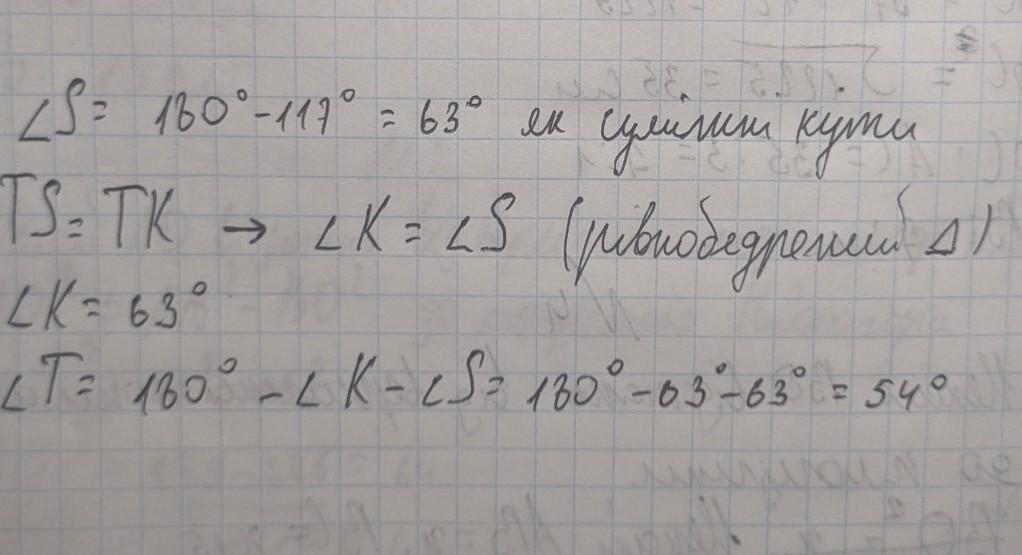 ∠S = 180° - 117° = 63° як суміжні кути
TS = TK → ∠K = ∠S (рівнобедрений Δ)
∠K = 63°
∠T = 180° - ∠K - ∠S = 180° - 63° - 63° = 54°